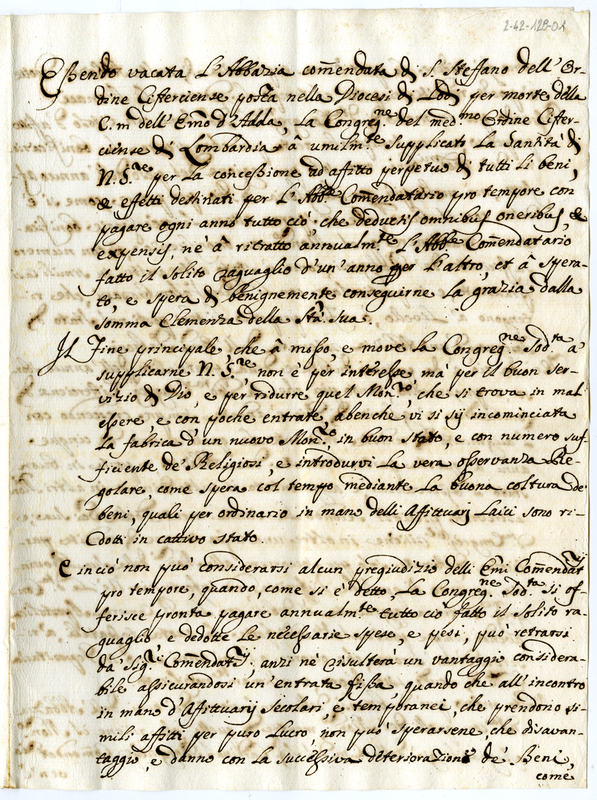 2-42-129-01
Essendo vacata l'Abbazia com̃endata di S. Steffano dell'Or-
dine Cisterciense posta nella Diocesi di Lodi per morte della
C. m dell'Em̃o d'Adda, la Congreg.ne del med.mo Ordine Cister-
ciense di Lombardia à umilm.te supplicati la Santità di
N. S.re per la concessione ad affitto perpetuo di tutti li beni,
& effetti destinati per l'Abb.te Comendatario pro tempore con
pagare ogni anno tutto ciò, che deductis omnibus oneribus, &
expensis, nè à ritratto annualm.te l'Abb.te Com̃endatario
fatto il solito raguaglio d'un'anno per l'altro, et à spera-
to, e spera di benignemente conseguirne la grazia dalla
somma Clemenza della Stà. Sua.
Il Fine principale, che à mosso, e move la Congreg.ne Sod.ta à
supplicarne N. S.re, non è per interesse, mà per il buon ser-
vizio di Dio, e per ridurre quel Mon.ro, che si trova in mal
essere, e con poche entrate, abenche vi si sij incominciata
la fabrica d'un nuovo Mon.ro, in buon stato, e con numero suf-
ficiente de' Religiosi, e introdurvi la vera osservanza Re-
golare, come spera col tempo mediante la buona coltura de'
beni, quali per ordinario in mano delli Affittuarij Laici sono ri-
dotti in cattivo stato.
E in ciò non può considerarsi alcun pregiudizio delli Em̃i Comendat.rij
pro tempore, quando, come si è detto, la Congreg.ne Sod.ta si of-
ferisce pronta pagare annualm.te tutto ciò fatto il solito ra-
guaglio e dedotte le necessarie spese, e pesi, può retrarsi
dà Sig.ri Comendat.rij, anzi nè risulterà un vantaggio considera-
bile assicurandosi un'entrata fissa, quando che all'incontro
in mano d'Affittuarij Secolari, e temporanei, che prendono si-
mili affitti per puro lucro, non può sperarsene, che disavan-
taggio, e danno con la successiva deteriorazione de' Beni,
come